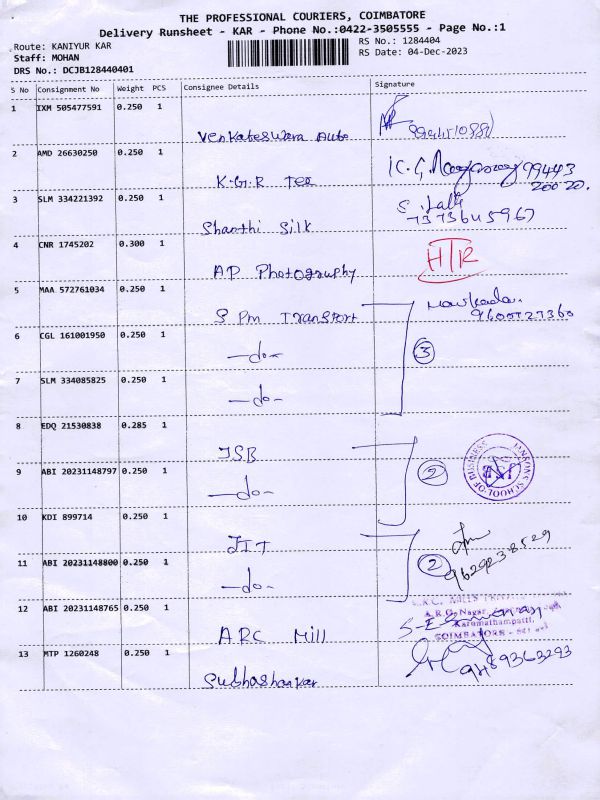 THE PROFESSIONAL COURIERS, COIMBATORE
Delivery Runsheet - KAR - Phone No.:0422-3505555 - Page No.:1
Route: KANIYUR KAR
RS No.: 1284404
Staff: MOHAN
RS Date: 04-Dec-2023
DRS No.: DCJB128440401
S No Consignment No Weight PCS Consignee Details Signature
1 IXM 505477591 0.250 1
Venkateswara Auto
2 AMD 26630250 0.250 1
K.G.R Tex 99443
20020.
3 SLM 334221392 0.250 1
Shanthi Silk 7373645967
4 CNR 1745202 0.300 1 HTR
AP Photography
5 MAA 572761034 0.250 1
S Pm Transport 9600727360
6 CGL 161001950 0.250 1
-do- 3
7 SLM 334085825 0.250 1
-do-
8 EDQ 21530838 0.285 1
JSB
9 ABI 20231148797 0.250 1 2
-do-
JANSONS SCHOOL OF BUSINESS
10 KDI 899714 0.250 1
JIT 9629238529
11 ABI 20231148800 0.250 1 2
-do-
12 ABI 20231148765 0.250 1
A.R.G. Nagar,
Karumathampatti,
ARC Mill COIMBATORE
13 MTP 1260248 0.250 1
Subhashankar 9489363293